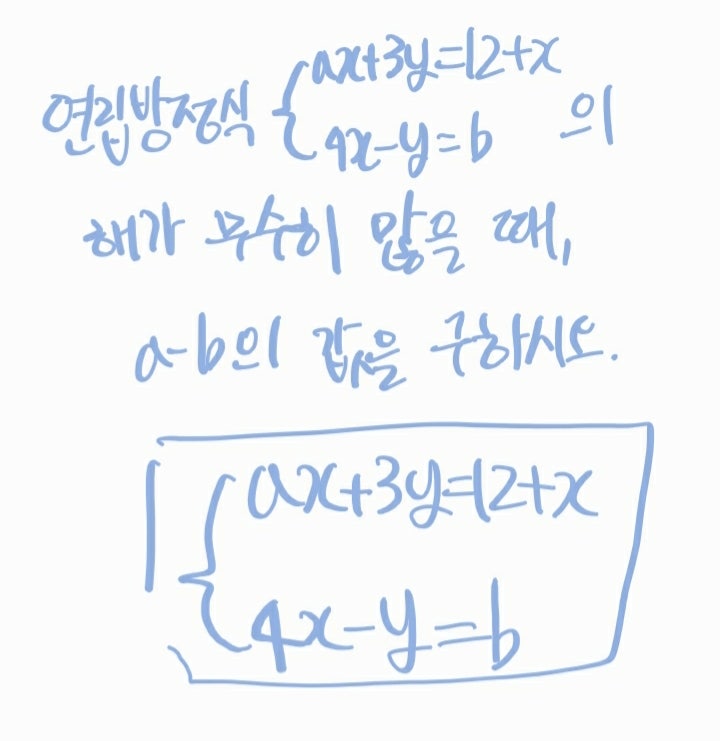 연립방정식 { ax+3y=12+x
4x-y=b 의
해가 무수히 많을 때,
a-b의 값을 구하시오.
{ ax+3y=12+x
4x-y=b